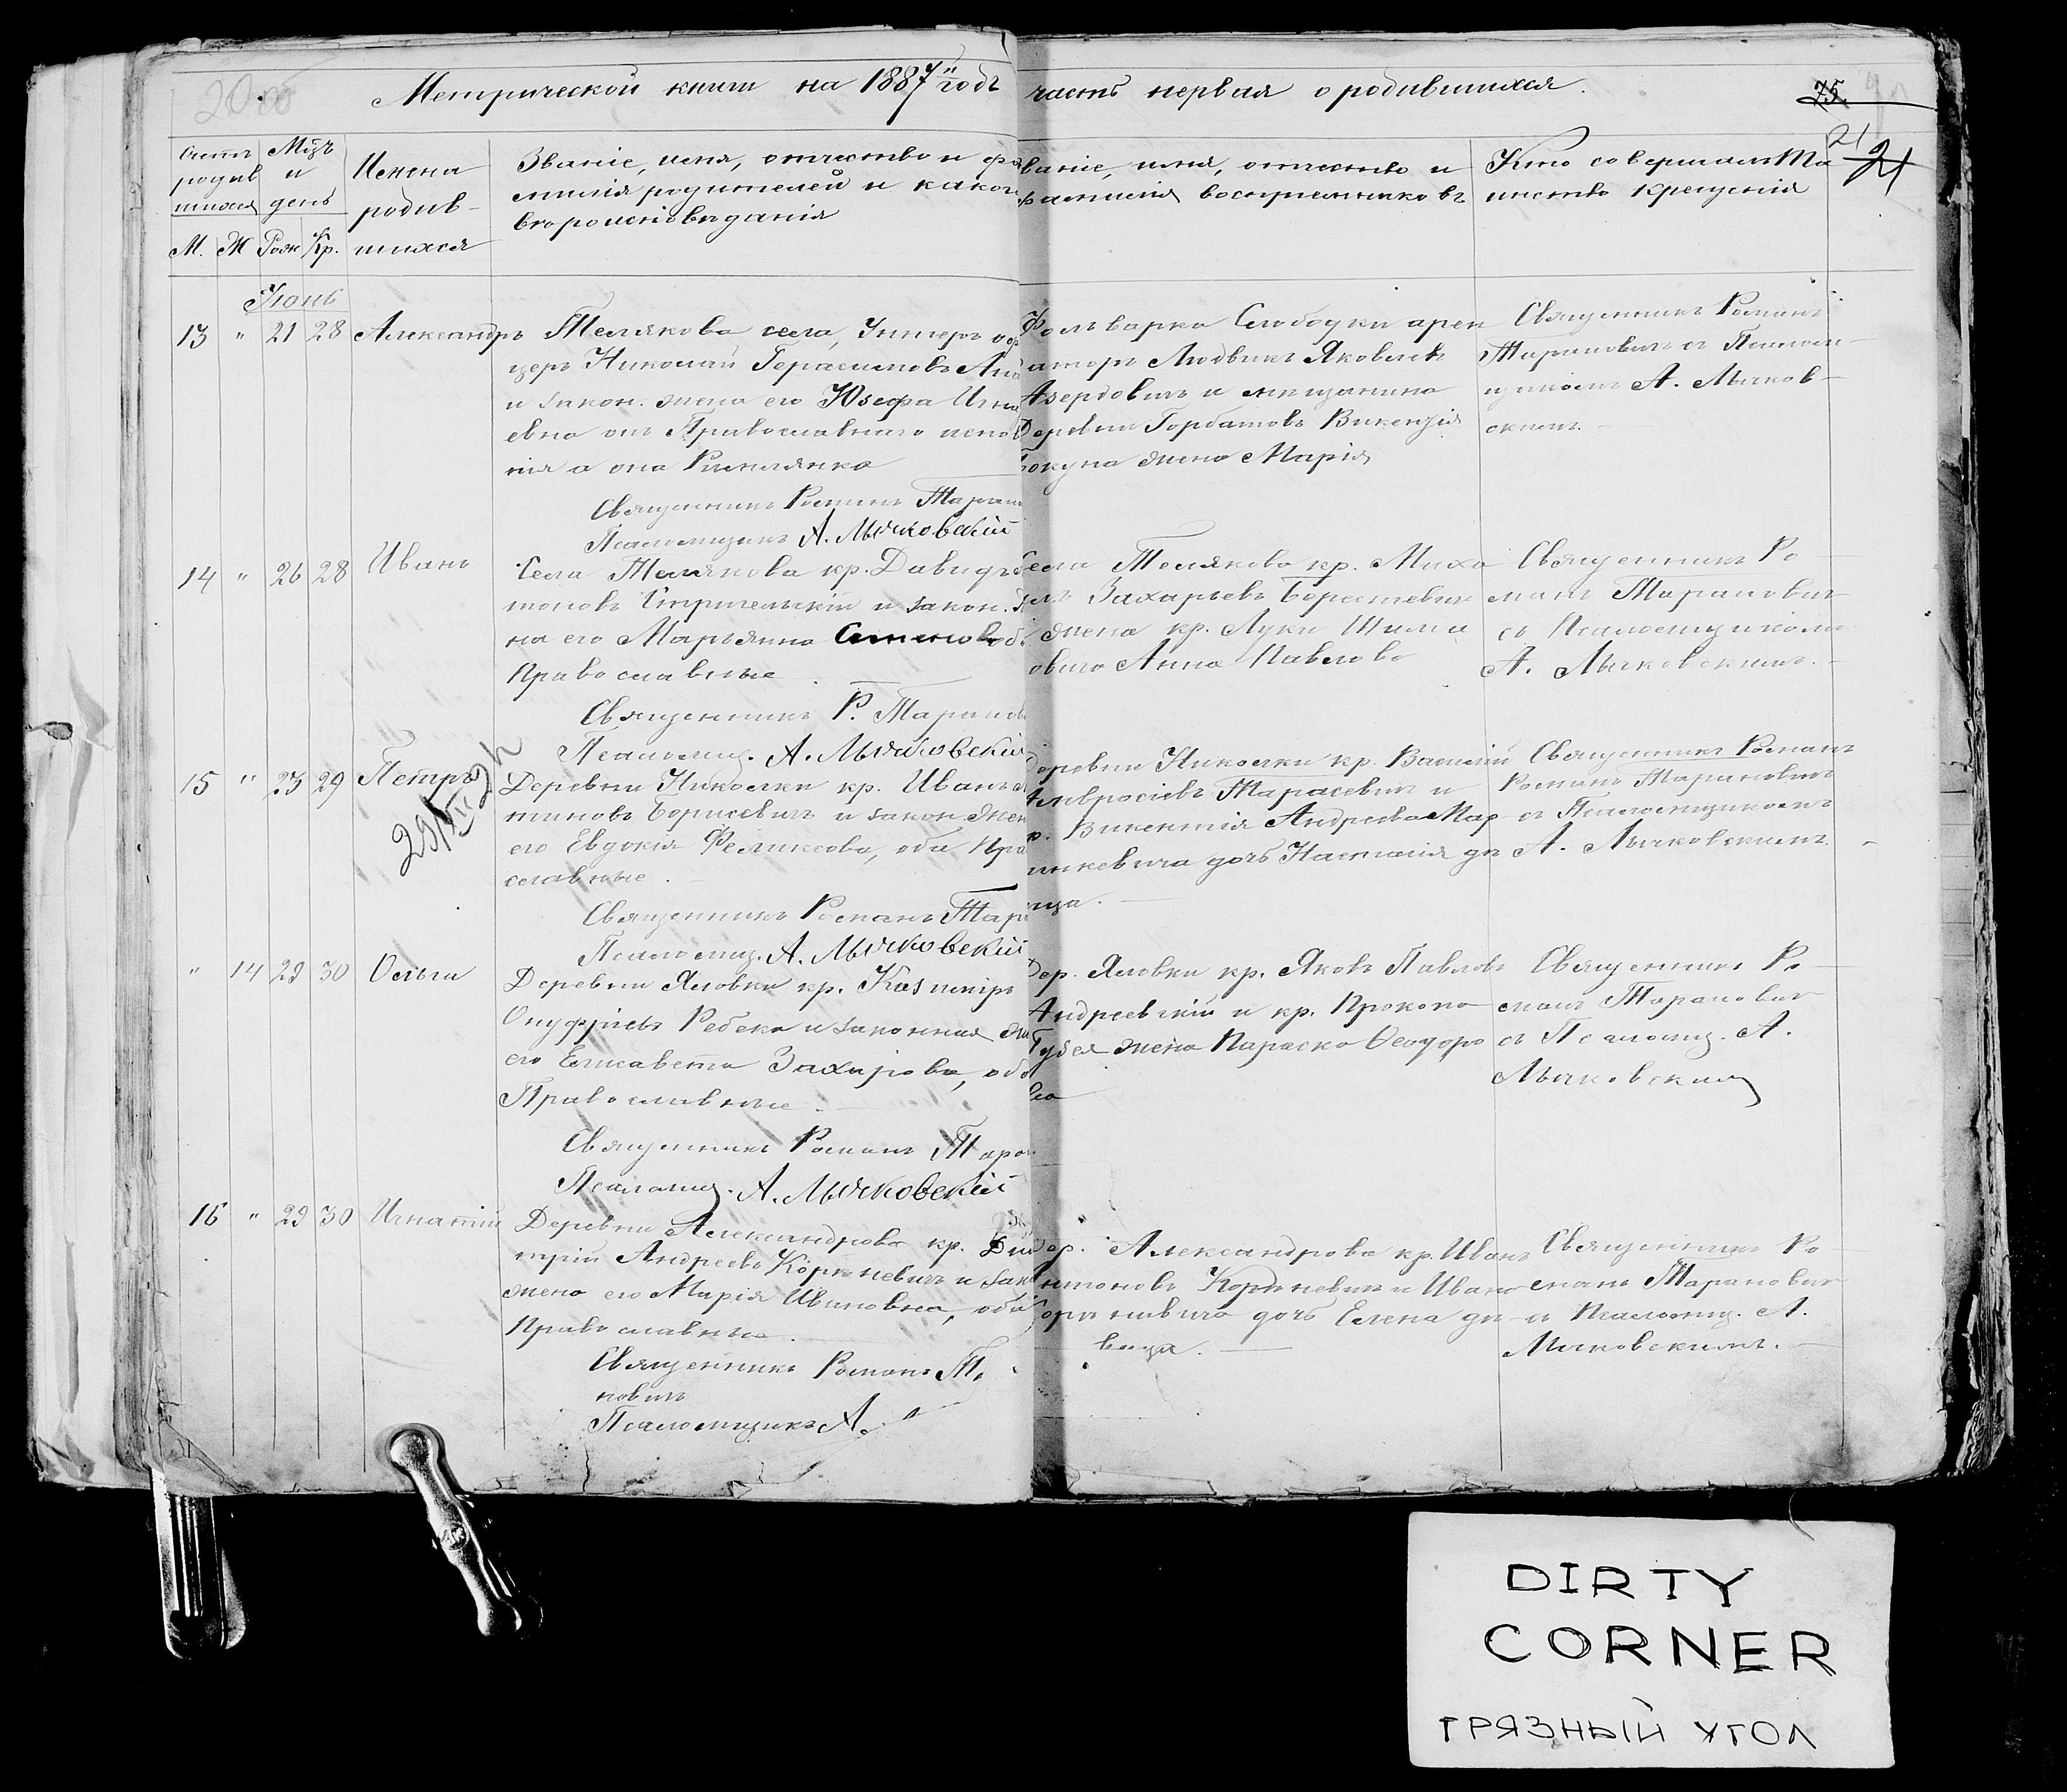 Метрической книги на 1887й годъ часть первая о родившихся.
75.
21
21
Счетъ родив шихся
Мѣць и день
Имена родив- шихся
Званіе, имя, отчество и фа
милія родителей и какого
вѣроисповѣданія
М. Ж Рож Кр.
званіе, имя, отчество и
фамилія воспріемниковъ
Кто совершалъ Та
инство крещенія
Іюнь
13 " 21 28 Александръ
Телякова села, Унтеръ оф
церъ Николай Герасимовъ
и закон. жена его Юзефа
евна онъ Православнаго испов
нія а она Римлянка
Священникъ Романъ Таран
Псаломщикъ А. Лычковскій
Фольварка Слободки арен
аторъ Людвикъ Яковлевъ
Азердовичъ и мещанина
Деревни Горбатовъ Викентія
жена Марія
Священникъ Романъ
Тарановичъ съ Псалом-
щикомъ А. Лычков-
скимъ.
14 " 26 28 Иванъ
Села Телякова кр. Давидъ
тоновъ и закон. ж
на его Марьянна Семенова
Православные
Священникъ Р. Таранов
Псаломщ. А. Лычковскій
Села Телякова кр. Миха
илъ Захарьевъ Берестевичъ
жена кр. Луки Шима
овича Анна Павлова
Священникъ Ро
манъ Тарановичъ
съ Псаломщикомъ
А. Лычковскимъ.
15 " 23 29 Петръ
Деревни Николки кр. Иванъ
тиновъ Борисевичъ и закон. жен
его Евдокія Феликсова, оба Пра
славные.
Священникъ Романъ Тар
Псаломщ. А. Лычковскій
Деревни Николки кр. Василій
Амвросіевъ Тарасевичъ и
кр. Викентія Андреева Мар
цинкевича дочь Настасія дѣ
вица.
Священникъ Романъ
Романъ Тарановичъ
съ Псаломщикомъ
А. Лычковскимъ.
" 14 29 30 Ольга
Деревни Яловки кр. Казимиръ
Онуфріевъ Ребека и законная же
его Елисавета Захарова, оба
Православные.
Священникъ Романъ Таран
Псаломщ. А. Лычковскій
Дер. Яловки кр. Яковъ Павловъ
Андреевскій и кр. Прокопа
жена Параска Ѳеодоро
ва
Священникъ Ро
манъ Тарановичъ
съ Псаломщ. А.
Лычковскимъ
16 " 29 30 Игнатій
Деревни Александрова кр. Дми
трій Андреевъ Корженевичъ и зак
жена его Марія Ивановна, оба
Православные.
Священникъ Романъ Т.
новичъ
Псаломщикъ А.
Дер. Александрова кр. Иванъ
нтоновъ Корженевичъ и Ивана
дочь Елена дѣ
вица.
Священникъ Ро
манъ Тарановичъ
съ Псаломщ. А.
Лычковскимъ.
DIRTY
CORNER
ГРЯЗНЫЙ УГОЛ